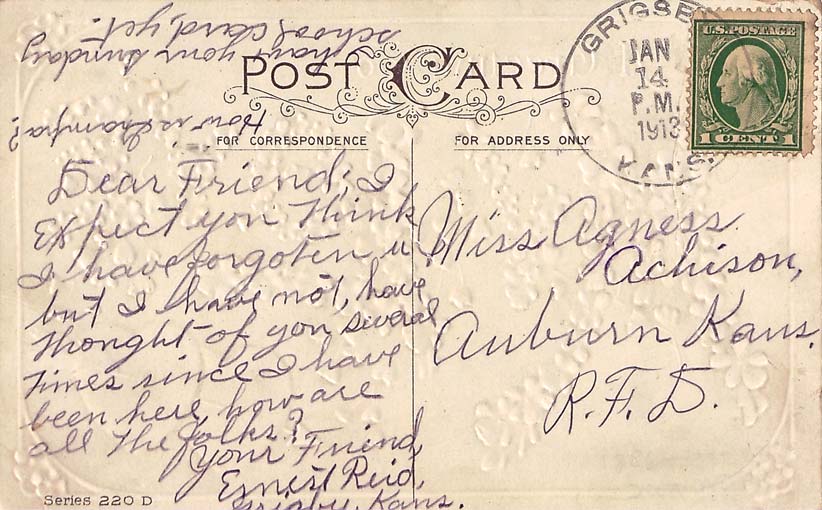 POST CARD
FOR CORRESPONDENCE
FOR ADDRESS ONLY
GRIGSB
JAN
14
P.M.
1913
KANS.
U.S. POSTAGE
1 CENT 1
Dear Friend; I
Expect you Think
I have forgoten u
but I have not, have
Thought of you several
Times since I have
been here, how are
all The folks?
Your Friend,
Ernest Reid,
Kans.
How is Grampa?
have your Sunday
school card yet.
Miss Agness
Achison,
Auburn Kans.
R.F.D.
Series 220 D